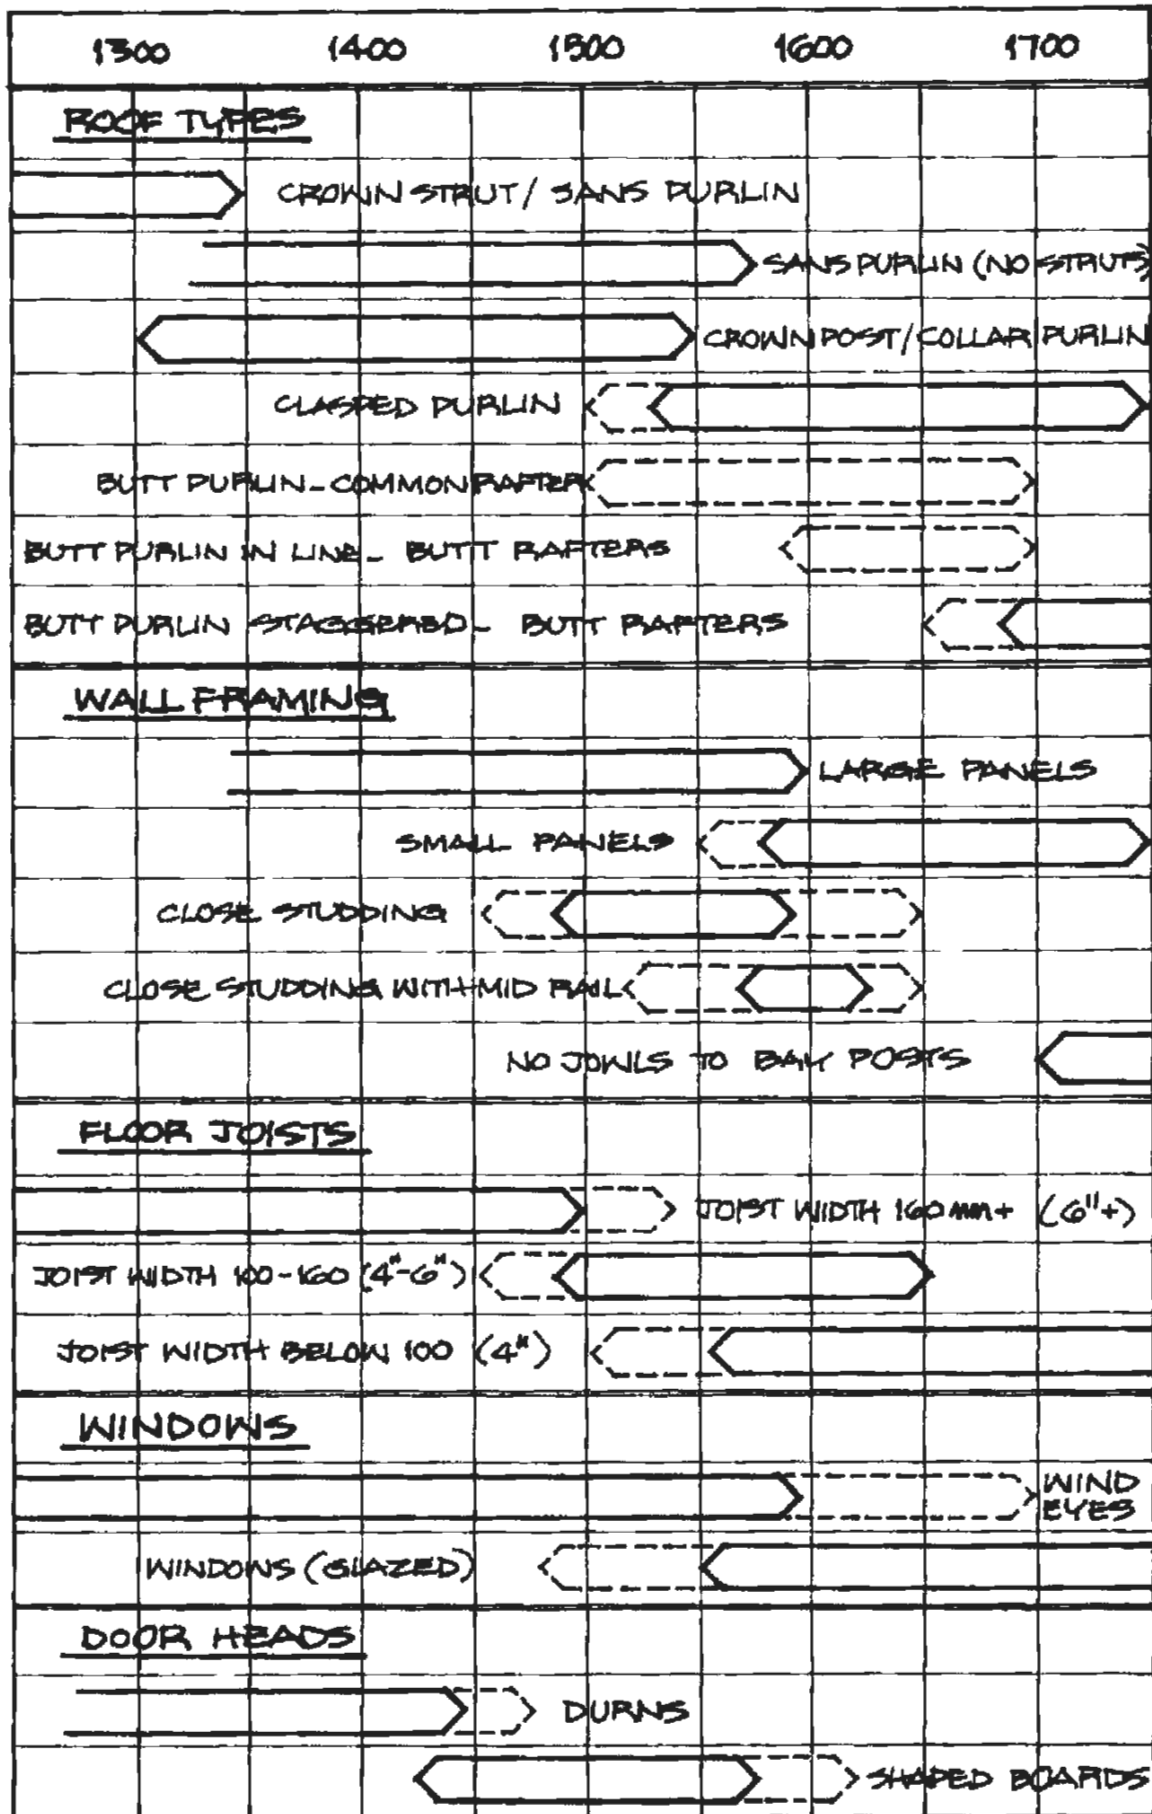 1300 1400 1500 1600 1700
ROOF TYPES
CROWN STRUT / SANS PURLIN
SANS PURLIN (NO STRUTS)
CROWN POST / COLLAR PURLIN
CLASPED PURLIN
BUTT PURLIN - COMMON RAFTER
BUTT PURLIN IN LINE - BUTT RAFTERS
BUTT PURLIN STAGGERED - BUTT RAFTERS
WALL FRAMING
LARGE PANELS
SMALL PANELS
CLOSE STUDDING
CLOSE STUDDING WITH MID RAIL
NO JOWLS TO BAY POSTS
FLOOR JOISTS
JOIST WIDTH 160mm+ (6"+)
JOIST WIDTH 100-160 (4"-6")
JOIST WIDTH BELOW 100 (4")
WINDOWS
WIND
EYES
WINDOWS (GLAZED)
DOOR HEADS
DURNS
SHAPED BOARDS